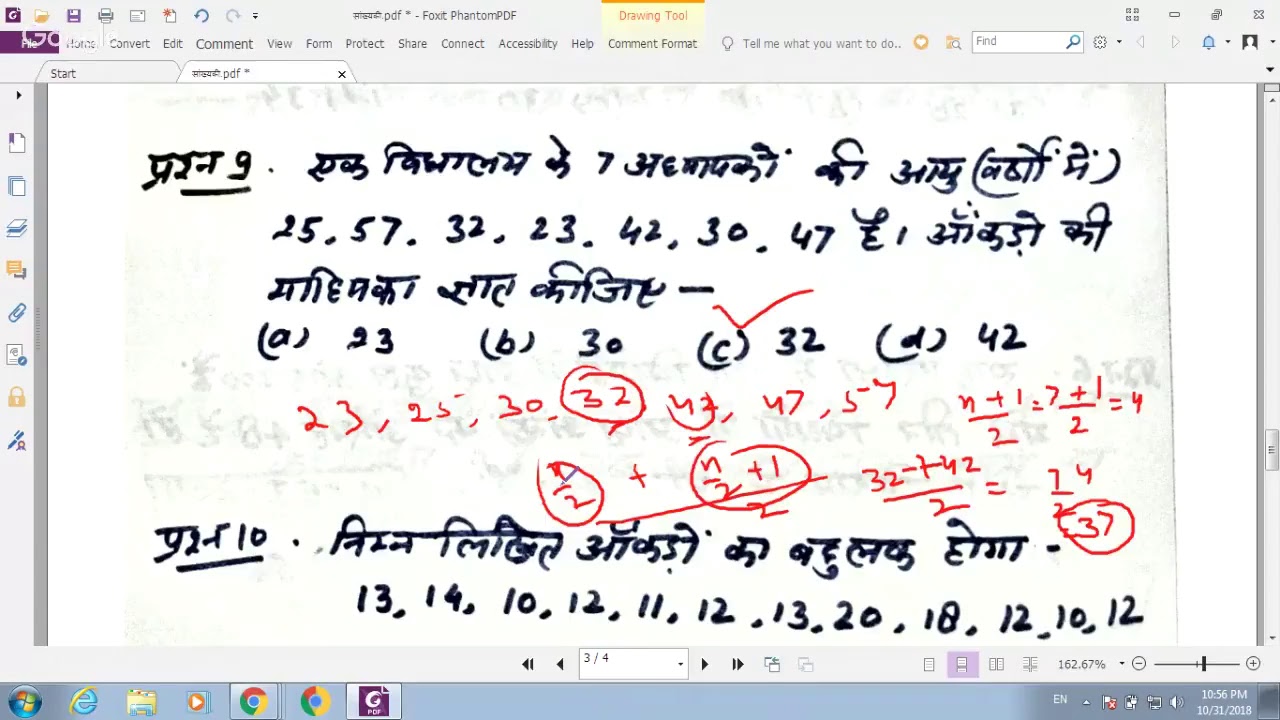 सांख्यकी.pdf * - Foxit PhantomPDF
Drawing Tool
File Home Convert Edit Comment View Form Protect Share Connect Accessibility Help Comment Format Tell me what you want to do.. Find
Start सांख्यकी.pdf *
प्रश्न 9. एक विधालय के 7 अध्यापकों की आयु (वर्षों में)
25, 57, 32, 23, 42, 30, 47 है। आँकड़ो की
माध्यिका ज्ञात कीजिए -
(a) 23 (b) 30 (c) 32 (d) 42
23, 25, 30, 32, 42, 47, 57 n+1/2 = 7+1/2 = 4
n/2 + n/2 + 1 / 2 32+42/2 = 74/2
=37
प्रश्न 10. निम्न लिखित आँकड़ों का बहुलक होगा -
13, 14, 10, 12, 11, 12, 13, 20, 18, 12, 10, 12
3 / 4 162.67%
EN 10:56 PM
10/31/2018